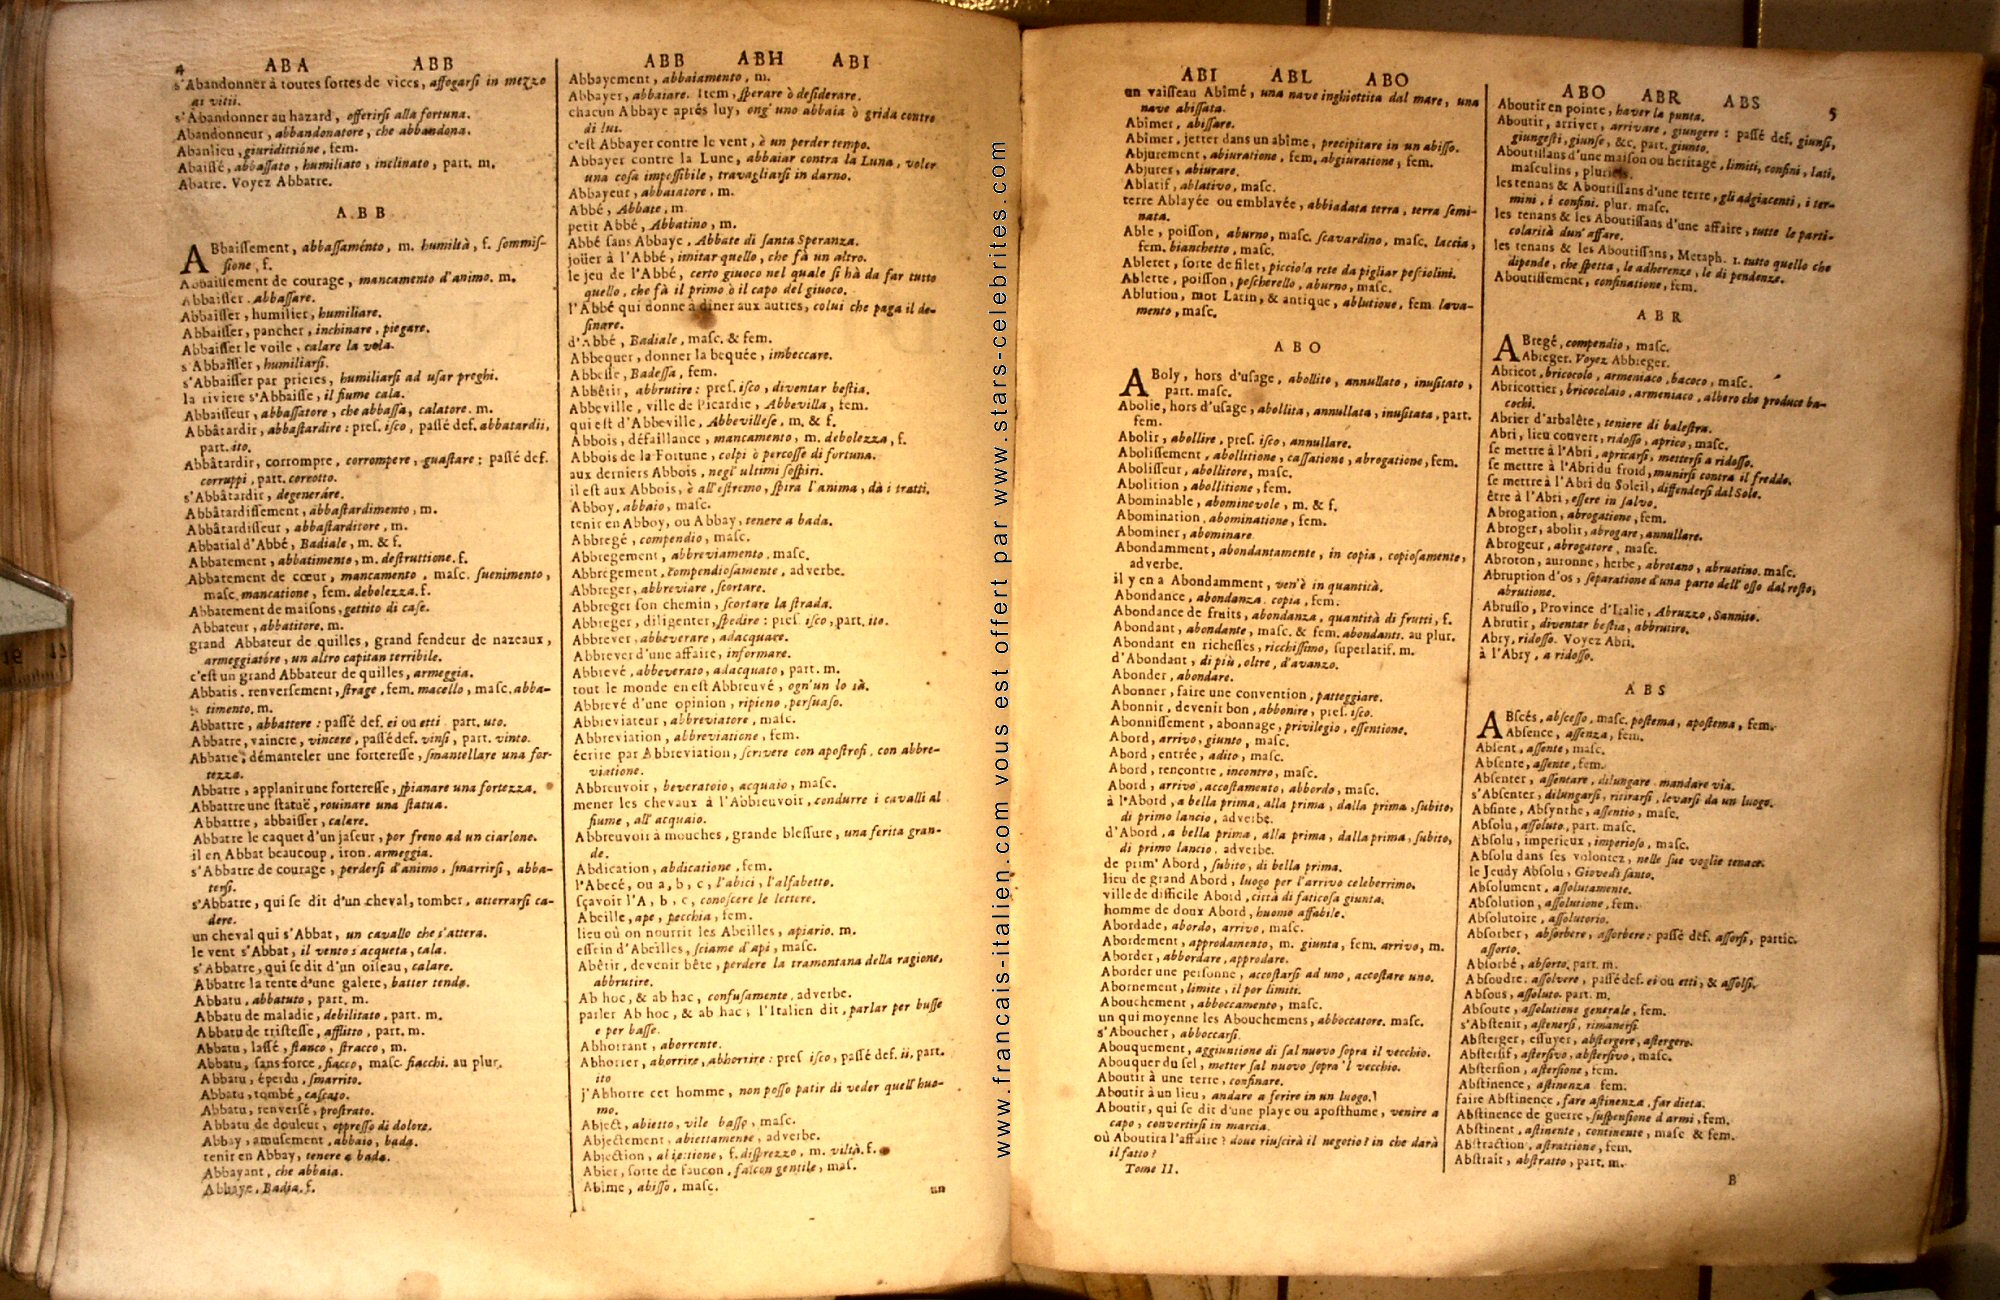 4 ABA ABB
s'Abandonner à toutes sortes de vices, affogarsi in mezzo
ai vitii.
s'Abandonner au hazard, offerirsi alla fortuna.
Abandonneur, abbandonatore, che abbandona.
Abanlieu, giuridittióne, fem.
Abaissé, abbassato, humiliato, inclinato, part. m.
Abatre. Voyez Abbatre.
ABB
ABbaissement, abbassaménto, m. humiltà, f. sommis-
sione, f.
Abbaissement de courage, mancamento d'animo. m.
Abbaisser, abbassare.
Abbaisser, humilier, humiliare.
Abbaisser, pancher, inchinare, piegare.
Abbaisser le voile, calare la vela.
s'Abbaisser, humiliarsi.
s'Abbaisser par prieres, humiliarsi ad usar preghi.
la riviere s'Abbaisse, il fiume cala.
Abbaisseur, abbassatore, che abbassa, calatore. m.
Abbâtardir, abbastardire: pres. isco, passé def. abbatardii,
part. ito.
Abbâtardir, corrompre, corrompere, guastare: passé def.
corruppi, part. corrotto.
s'Abbâtardir, degeneráre.
Abbâtardissement, abbastardimento, m.
Abbâtardisseur, abbastarditore, m.
Abbatial d'Abbé, Badiale, m. & f.
Abbatement, abbatimento, m. destruttione. f.
Abbatement de cœur, mancamento, masc. suenimento,
masc. mancatione, fem. debolezza. f.
Abbatement de maisons, gettito di case.
Abbateur, abbatitore. m.
grand Abbateur de quilles, grand fendeur de nazeaux,
armeggiatóre, un altro capitan terribile.
c'est un grand Abbateur de quilles, armeggia.
Abbatis, renversement, strage, fem. macello, masc. abba-
timento. m.
Abbattre, abbattere: passé def. ei ou etti part. uto.
Abbatre, vaincre, vincere, passé def. vinsi, part. vinto.
Abbatre, démanteler une forteresse, smantellare una for-
tezza.
Abbatre, applanir une forteresse, spianare una fortezza.
Abbattre une statuë, rouinare una statua.
Abbattre, abbaisser, calare.
Abbatre le caquet d'un jaseur, por freno ad un ciarlone.
il en Abbat beaucoup, iron. armeggia.
s'Abbatre de courage, perdersi d'animo, smarrirsi, abba-
tersi.
s'Abbatre, qui se dit d'un cheval, tomber, atterrarsi ca-
dere.
un cheval qui s'Abbat, un cavallo che s'attera.
le vent s'Abbat, il vento s'acqueta, cala.
s'Abbatre, qui se dit d'un oiseau, calare.
Abbatre la tente d'une galere, batter tenda.
Abbatu, abbatuto, part. m.
Abbatu de maladie, debilitato, part. m.
Abbatu de tristesse, afflitto, part. m.
Abbatu, lassé, stanco, stracco, m.
Abbatu, sans force, fiacco, masc. fiacchi. au plur.
Abbatu, éperdu, smarrito.
Abbatu, tombé, cascato.
Abbatu, renversé, prostrato.
Abbatu de douleur, oppresso di dolore.
Abbay, amusement, abbaio, bada.
tenir en Abbay, tenere a bada.
Abbayant, che abbaia.
Abbaye, Badia. f.
ABB ABH ABI
Abbayement, abbaiamento, m.
Abbayer, abbaiare. Item, sperare ò desiderare.
chacun Abbaye aprés luy, ong' uno abbaia ò grida contro
di lui.
c'est Abbayer contre le vent, è un perder tempo.
Abbayer contre la Lune, abbaiar contra la Luna, voler
una cosa impossibile, travagliarsi in darno.
Abbayeur, abbaiatore, m.
Abbé, Abbate, m.
petit Abbé, Abbatino, m.
Abbé sans Abbaye, Abbate di santa Speranza.
joüer à l'Abbé, imitar quello, che fà un altro.
le jeu de l'Abbé, certo giuoco nel quale si hà da far tutto
quello, che fà il primo ò il capo del giuoco.
l'Abbé qui donne à dîner aux autres, colui che paga il de-
sinare.
d'Abbé, Badiale, masc. & fem.
Abbequer, donner la bequée, imbeccare.
Abbesse, Badessa, fem.
Abbêtir, abbrutire: pres. isco, diventar bestia.
Abbeville, ville de Picardie, Abbevilla, fem.
qui est d'Abbeville, Abbevillese, m. & f.
Abbois, défaillance, mancamento, m. debolezza, f.
Abbois de la Fortune, colpi ò percosse di fortuna.
aux derniers Abbois, negl' ultimi sospiri.
il est aux Abbois, è all'estremo, spira l'anima, dà i tratti.
Abboy, abbaio, masc.
tenir en Abboy, ou Abbay, tenere a bada.
Abbregé, compendio, masc.
Abbregement, abbreviamento, masc.
Abbrégement, compendiosamente, adverbe.
Abbreger, abbreviare, scortare.
Abbreger son chemin, scortare la strada.
Abbreger, diligenter, spedire: pres. isco, part. ito.
Abbrever, abbeverare, adacquare.
Abbrever d'une affaire, informare.
Abbrevé, abbeverato, adacquato, part. m.
tout le monde en est Abbreuvé, ogn'un lo sà.
Abbrevé d'une opinion, ripieno, persuaso.
Abbreviateur, abbreviatore, masc.
Abbreviation, abbreviatione, fem.
écrire par Abbreviation, scrivere con apostrofi, con abbre-
viatione.
Abbreuvoir, beveratoio, acquaio, masc.
mener les chevaux à l'Abbreuvoir, condurre i cavalli al
fiume, all' acquaio.
Abbreuvoir à mouches, grande blessure, una ferita gran-
de.
Abdication, abdicatione, fem.
l'Abecé, ou a, b, c, l'abici, l'alfabetto.
sçavoir l'A, b, c, conoscere le lettere.
Abeille, ape, pecchia, fem.
lieu où on nourrit les Abeilles, apiario. m.
essein d'Abeilles, sciame d'api, masc.
Abêtir, devenir bête, perdere la tramontana della ragione,
abbrutire.
Ab hoc, & ab hac, confusamente, adverbe.
parler Ab hoc, & ab hac; l'Italien dit, parlar per busse
e per basse.
Abhorrant, aborrente.
Abhorrer, aborrire, abhorrire: pres isco, passé def. ii, part.
ito
j'Abhorre cet homme, non posso patir di veder quell' huo-
mo.
Abject, abietto, vile basso, masc.
Abjectement, abiettamente, adverbe.
Abjection, abiettione, f. disprezzo, m. viltà. f.
Abier, sorte de faucon, falcon gentile, mas.
Abime, abisso, masc.
un
www.francais-italien.com vous est offert par www.stars-celebrites.com
ABI ABL ABO
un vaisseau Abîmé, una nave inghiottita dal mare, una
nave abissata.
Abîmer, abissare.
Abîmer, jetter dans un abîme, precipitare in un abisso.
Abjurement, abiuratione, fem. abgiuratione, fem.
Abjurer, abiurare.
Ablatif, ablativo, masc.
terre Ablayée ou emblavée, abbiadata terra, terra semi-
nata.
Able, poisson, aburno, masc. scavardino, masc. laccia,
fem. bianchetto, masc.
Ableret, sorte de filet, picciola rete da pigliar pesciolini.
Ablette, poisson, pescherello, aburno, masc.
Ablution, mot Latin, & antique, ablutione, fem lava-
mento, masc.
ABO
ABoly, hors d'usage, abollito, annullato, inusitato,
part. masc.
Abolie, hors d'usage, abollita, annullata, inusitata, part.
fem.
Abolir, abollire, pres. isco, annullare.
Abolissement, abollitione, cassatione, abrogatione, fem.
Abolisseur, abollitore, masc.
Abolition, abollitione, fem.
Abominable, abominevole, m. & f.
Abomination, abominatione, fem.
Abominer, abominare.
Abondamment, abondantamente, in copia, copiosamente,
adverbe.
il y en a Abondamment, ven'è in quantità.
Abondance, abondanza, copia, fem.
Abondance de fruits, abondanza, quantità di frutti, f.
Abondant, abondante, masc. & fem. abondanti. au plur.
Abondant en richesses, ricchissimo, superlatif. m.
d'Abondant, di più, oltre, d'avanzo.
Abonder, abondare.
Abonner, faire une convention, patteggiare.
Abonnir, devenir bon, abbonire, pres. isco.
Abonnissement, abonnage, privilegio, essentione.
Abord, arrivo, giunto, masc.
Abord, entrée, adito, masc.
Abord, rencontre, incontro, masc.
Abord, arrivo, accostamento, abbordo, masc.
à l'Abord, a bella prima, alla prima, dalla prima, subito,
di primo lancio, adverbe.
d'Abord, a bella prima, alla prima, dalla prima, subito,
di primo lancio, adverbe.
de prim' Abord, subito, di bella prima.
lieu de grand Abord, luogo per l'arrivo celeberrimo.
ville de difficile Abord, città di faticosa giunta.
homme de doux Abord, huomo affabile.
Abordade, abordo, arrivo, masc.
Abordement, approdamento, m. giunta, fem. arrivo, m.
Aborder, abbordare, approdare.
Aborder une personne, accostarsi ad uno, accostare uno.
Abornement, limite, il por limiti.
Abouchement, abboccamento, masc.
un qui moyenne les Abouchemens, abboccatore. masc.
s'Aboucher, abboccarsi.
Abouquement, aggiuntione di sal nuovo sopra il vecchio.
Abouquer du sel, metter sal nuovo sopra 'l vecchio.
Aboutir à une terre, confinare.
Aboutir à un lieu, andare a ferire in un luogo.
Aboutir, qui se dit d'une playe ou aposthume, venire a
capo, convertirsi in marcia.
où Aboutira l'affaire? doue riuscirà il negotio? in che darà
il fatto?
Tome II.
ABO ABR ABS 5
Aboutir en pointe, haver la punta.
Aboutir, arriver, arrivare, giungere: passé def. giunsi,
giungesti, giunse, &c. part. giunto.
Aboutissans d'une maison ou heritage, limiti, confini, lati,
masculins, pluriels.
les tenans & Aboutissans d'une terre, gli adgiacenti, i ter-
mini, i confini. plur. masc.
les tenans & les Aboutissans d'une affaire, tutte le parti-
colarità dun' affare.
les tenans & les Aboutissans, Metaph. 1. tutto quello che
dipende, che spetta, le adherenze, le di pendenze.
Aboutissement, confinatione, fem.
ABR
ABregé, compendio, masc.
Abreger. Voyez Abbreger.
Abricot, bricocolo, armeniaco, bacoco, masc.
Abricottier, bricocolaio, armeniaco, albero che produce ba-
cochi.
Abrier d'arbalête, teniere di balestra.
Abri, lieu couvert, ridosso, aprico, masc.
se mettre à l'Abri, apricarsi, mettersi a ridosso.
se mettre à l'Abri du froid, munirsi contra il freddo.
se mettre à l'Abri du Soleil, diffendersi dal Sole.
être à l'Abri, essere in salvo.
Abrogation, abrogatione, fem.
Abroger, abolir, abrogare, annullare.
Abrogeur, abrogatore, masc.
Abroton, auronne, herbe, abrotano, abruotino. masc.
Abruption d'os, separatione d'una parte dell' osso dal resto,
abrutione.
Abrusso, Province d'Italie, Abruzzo, Sannito.
Abrutir, diventar bestia, abbrutire.
Abry, ridosso. Voyez Abri.
à l'Abry, a ridosso.
ABS
ABscés, abscesso, masc. postema, apostema, fem.
Absence, assenza, fem.
Absent, assente, masc.
Absente, assente, fem.
Absenter, assentare, dilungare mandare via.
s'Absenter, dilungarsi, ritirarsi, levarsi da un luogo.
Absinte, Absynthe, assentio, masc.
Absolu, assoluto, part. masc.
Absolu, imperieux, imperioso, masc.
Absolu dans ses volontez, nelle sue voglie tenace.
le Jeudy Absolu, Giovedì santo.
Absolument, assolutamente.
Absolution, assolutione, fem.
Absolutoire, assolutorio.
Absorber, absorbere, assorbere: passé def. assorsi, partic.
assorto.
Absorbé, absorto, part. m.
Absoudre, assolvere, passé def. ei ou etti, & assolsi.
Absous, assoluto. part. m.
Absoute, assolutione generale, fem.
s'Abstenir, astenersi, rimanersi
Absterger, essuyer, abstergere, astergere.
Abstersif, astersivo, abstersivo, masc.
Abstersion, astersione, fem.
Abstinence, astinenza, fem.
faire Abstinence, fare astinenza, far dieta.
Abstinence de guerre, suspensione d'armi, fem.
Abstinent, astinente, continente, masc & fem.
Abstraction, astrattione, fem.
Abstrait, abstratto, part. m.
B